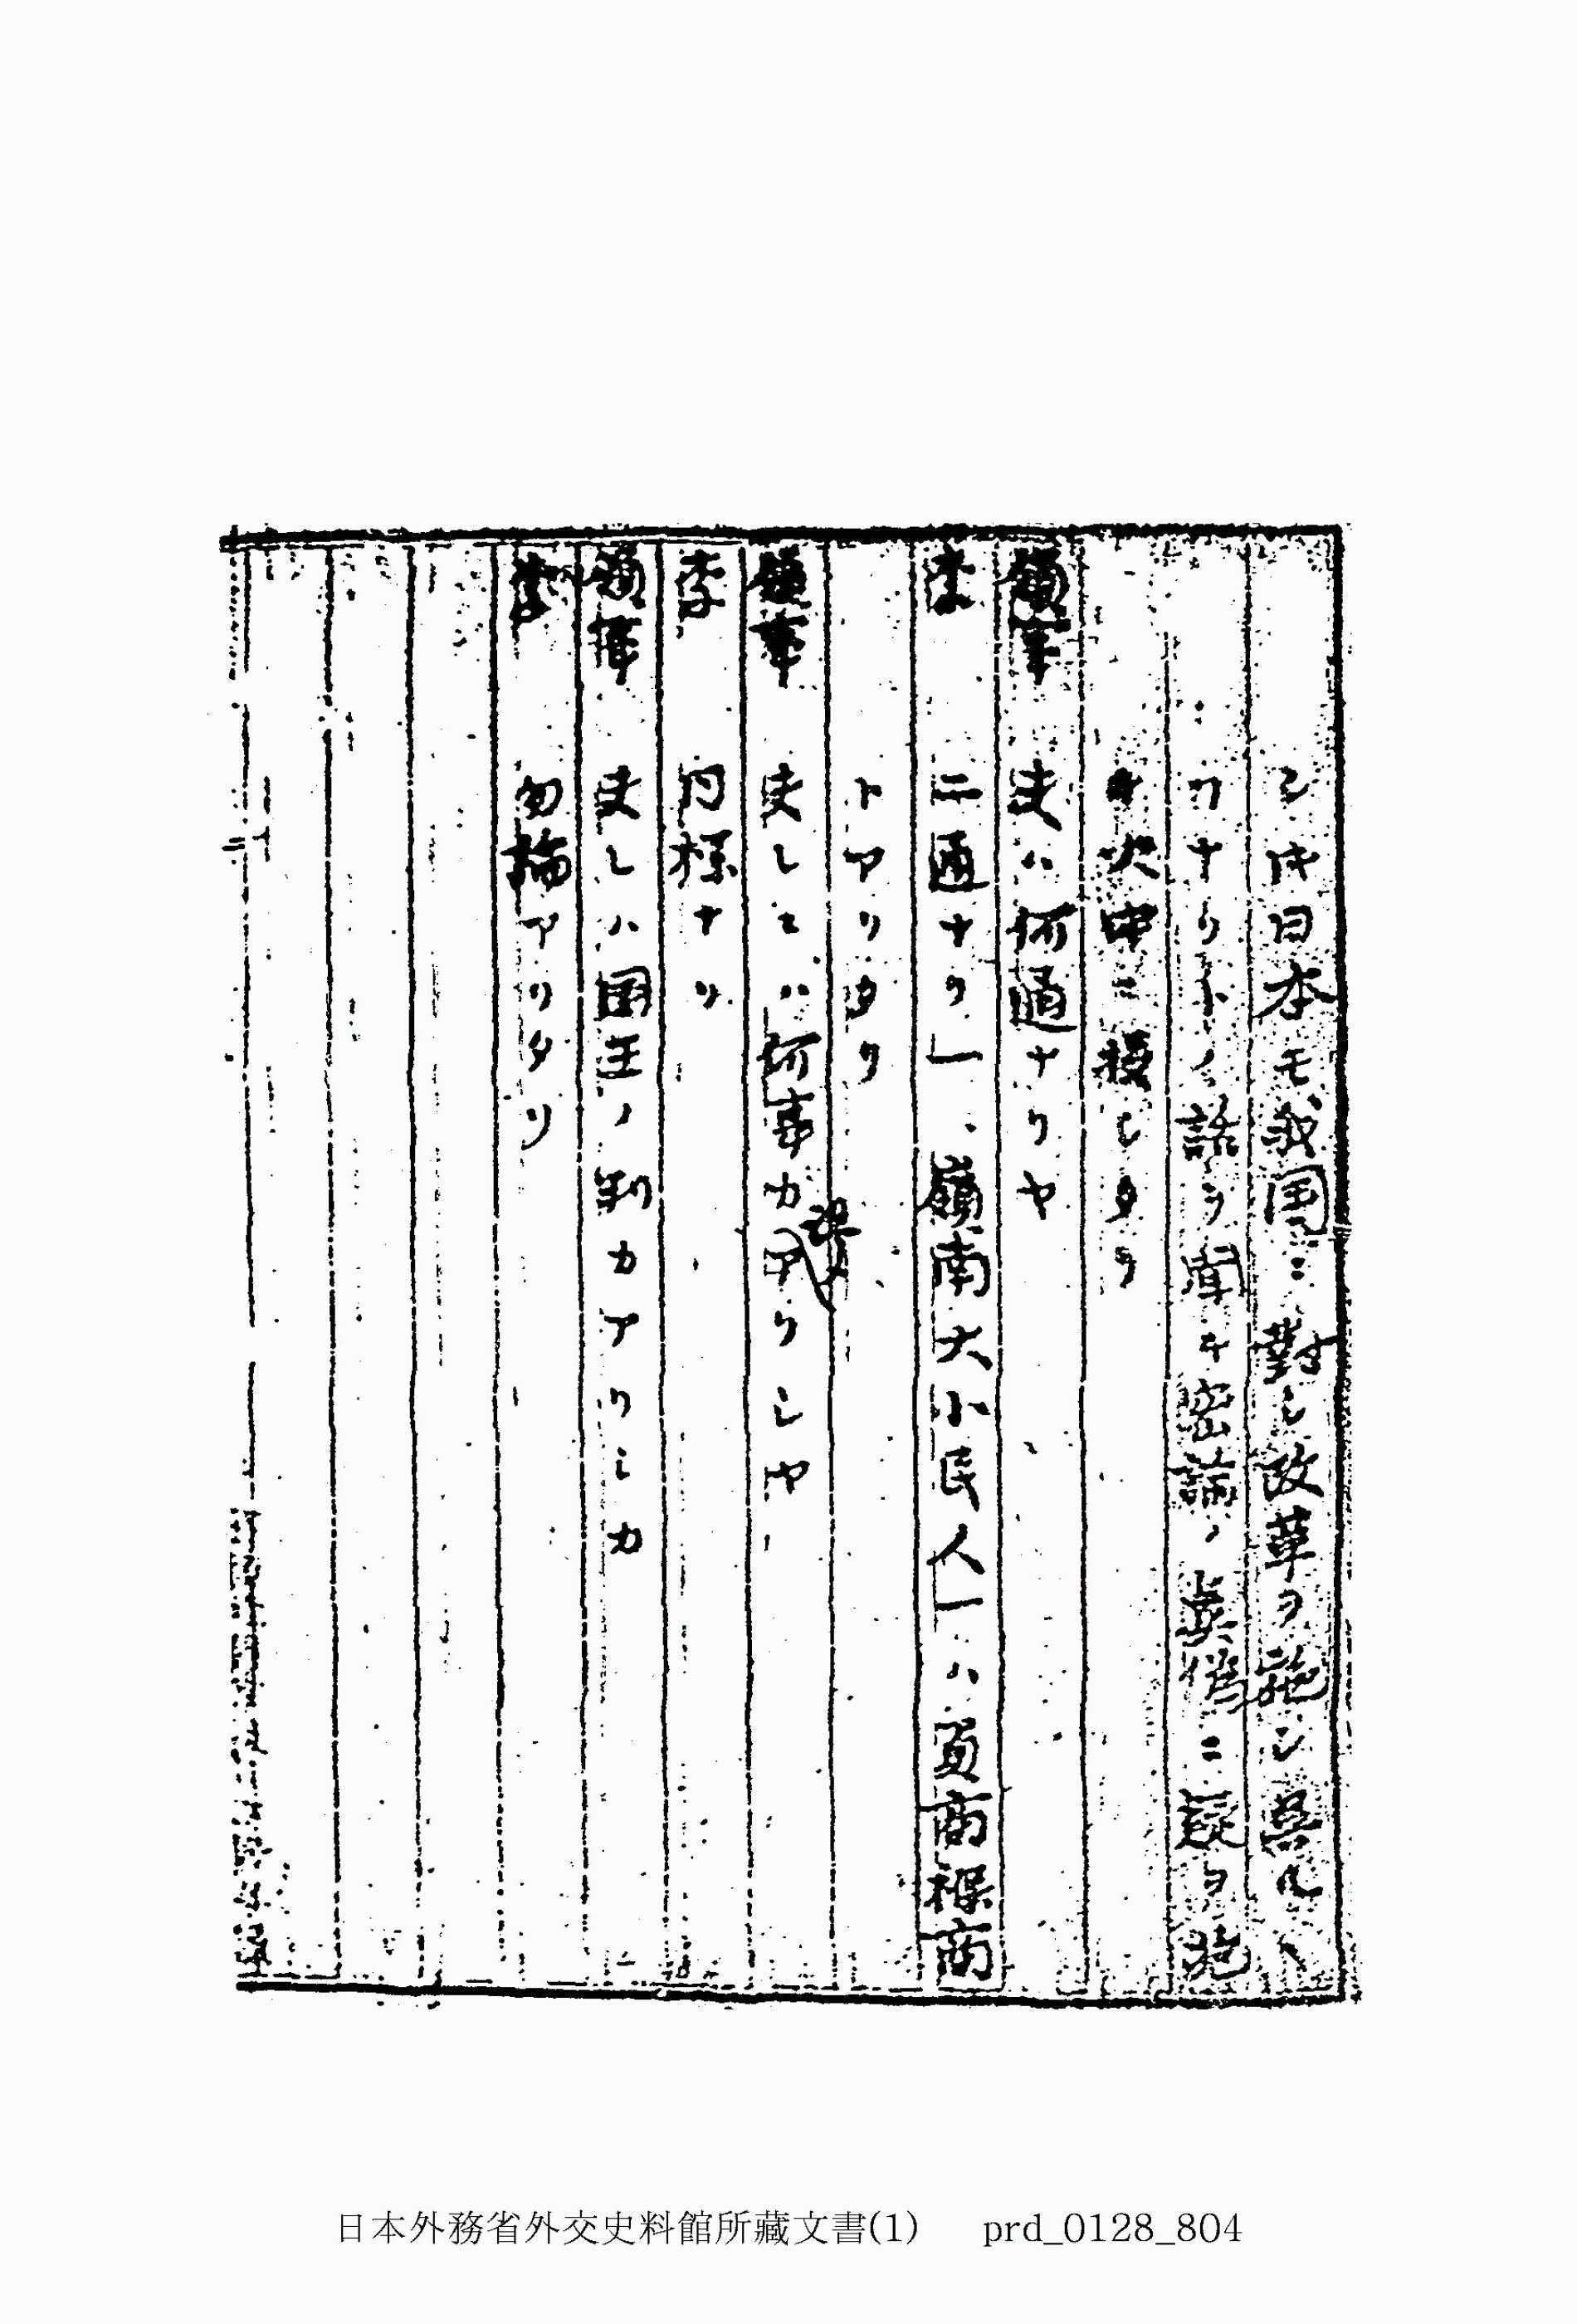 シ此日本モ我国ニ對シ改革ヲ施シ呉ルヽ
ワナリトノ話ヲ聞キ密諭ノ真偽ニ疑ヲ抱
キ火中ニ投シタリ
領事 夫ハ何通ナリヤ
李 二通ナリ一、嶺南大小民人一ハ負商褓商
トアリタリ
領事 夫レニハ何事カアリシヤ
李 同様ナリ
領事 夫レハ国王ノ判カアリシカ
李 勿論アリタリ
日本外務省外交史料館所藏文書(1) prd_0128_804